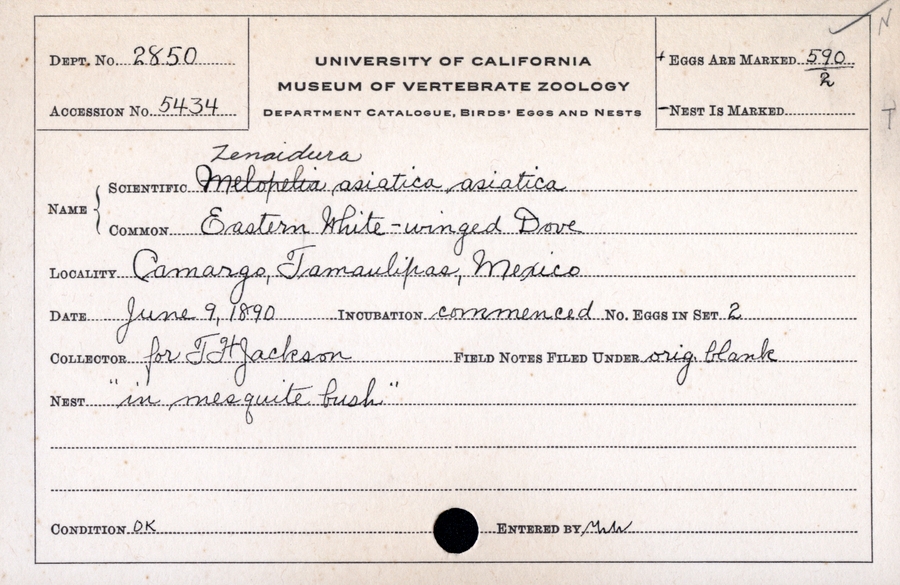 Dept. No. 2850
Accession No. 5434
UNIVERSITY OF CALIFORNIA
MUSEUM OF VERTEBRATE ZOOLOGY
Department Catalogue, Birds' Eggs and Nests
+ Eggs Are Marked 590/2
– Nest Is Marked
N
T
Zenaidura
Name { Scientific Melopelia asiatica asiatica
Common Eastern White-winged Dove
Locality Camargo, Tamaulipas, Mexico
Date June 9, 1890 Incubation commenced No. Eggs in Set 2
Collector for T H Jackson Field Notes Filed Under orig. blank
Nest "in mesquite bush"
Condition OK Entered by